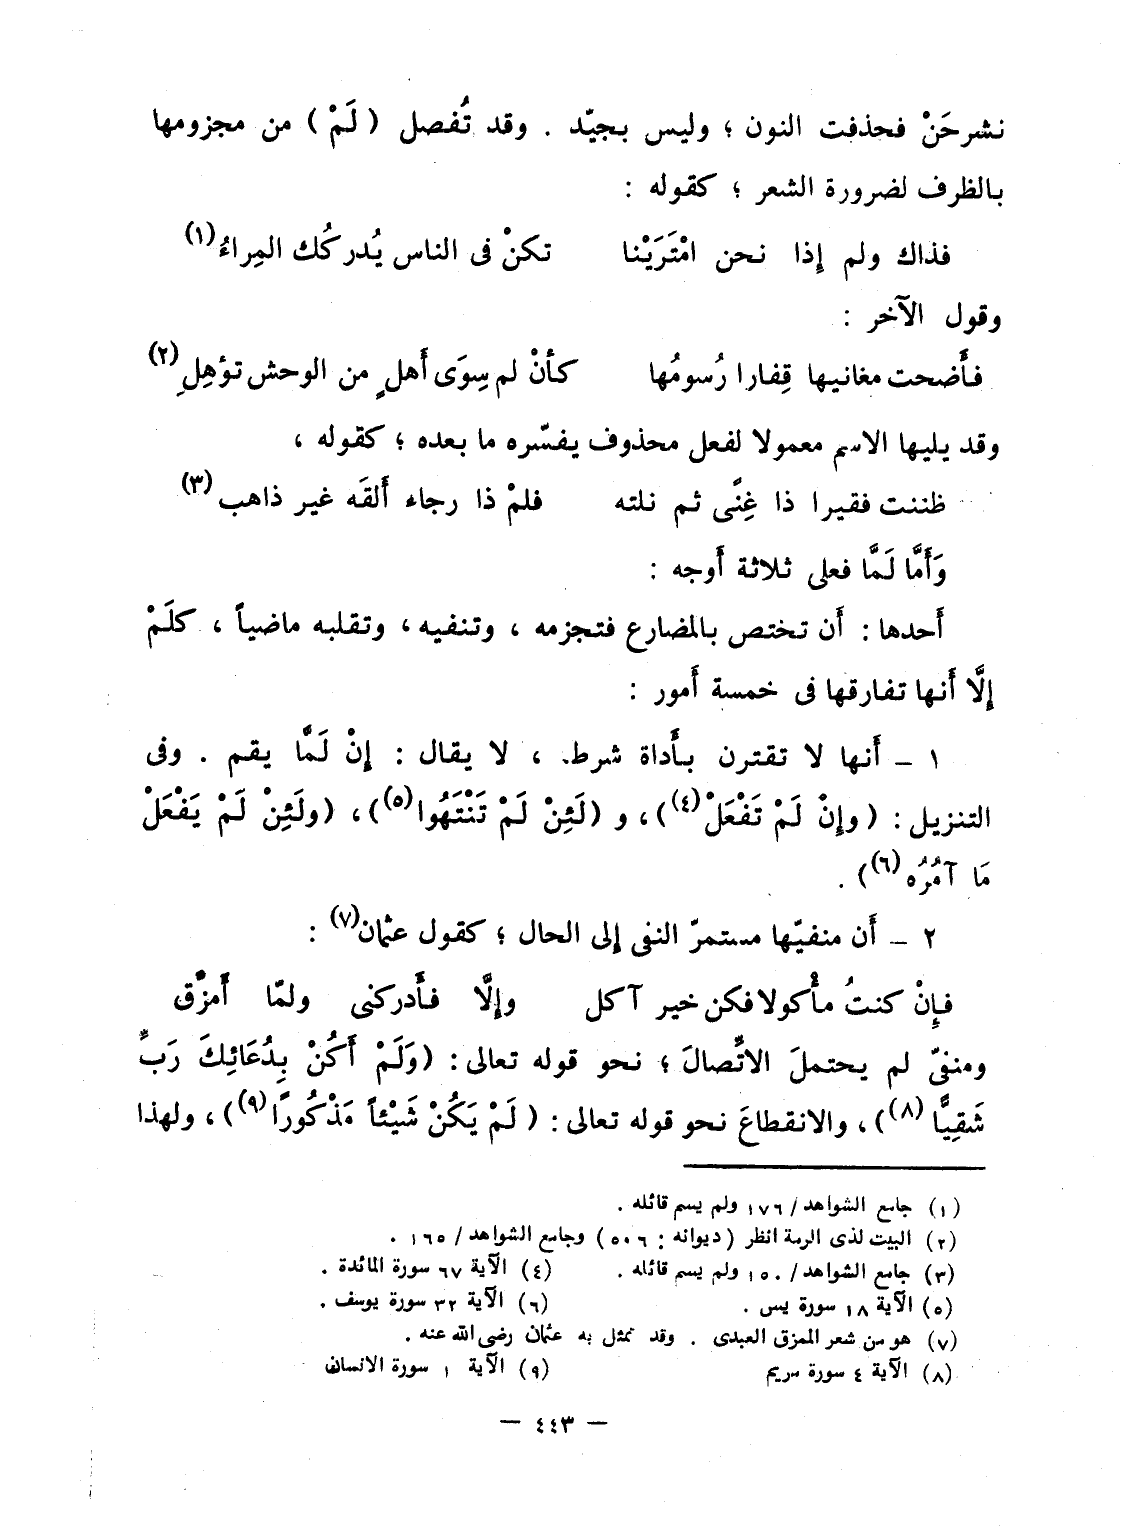 نشرحَنْ فحذفت النون ؛ وليس بجيّد . وقد تُفصل ( لَمْ ) من مجزومها
بالظرف لضرورة الشعر ؛ كقوله :
فذاك ولم إذا نحن امْتَرَيْنا تكنْ فى الناس يُدركُك المِراءُ(١)
وقول الآخر :
فأَضحت مغانيها قِفارا رُسومُها كأنْ لم سِوَى أَهلٍ من الوحش تؤهِلِ(٢)
وقد يليها الاسم معمولا لفعل محذوف يفسّره ما بعده ؛ كقوله ،
ظننت فقيرا ذا غِنًى ثم نلته فلمْ ذا رجاء أَلقَه غير ذاهب(٣)
وَأَمَّا لَمَّا فعلى ثلاثة أَوجه :
أَحدها : أَن تختص بالمضارع فتجزمه ، وتنفيه ، وتقلبه ماضياً ، كلَمْ
إلَّا أَنها تفارقها فى خمسة أَمور :
١ – أَنها لا تقترن بأَداة شرط ، لا يقال : إنْ لَمَّا يقم . وفى
التنزيل : ( وإنْ لَمْ تَفْعَلْ(٤) ) ، و ( لَئِنْ لَمْ تَنْتَهُوا(٥) ) ، ( ولَئِنْ لَمْ يَفْعَلْ
مَا آمُرُه(٦) ) .
٢ – أَن منفيّها مستمرّ النفى إلى الحال ؛ كقول عثمان(٧) :
فإنْ كنتُ مأْكولا فكن خير آكل وإلَّا فأَدركنى ولمّا أَمزَّق
ومنفىّ لم يحتملَ الاتِّصالَ ؛ نحو قوله تعالى : ( وَلَمْ أَكُنْ بِدُعَائِكَ رَبِّ
شَقِيًّا(٨) ) ، والانقطاعَ نحو قوله تعالى : ( لَمْ يَكُنْ شَيْئاً مَذْكُورًا(٩) ) ، ولهذا
(١) جامع الشواهد / ١٧٦ ولم يسم قائله .
(٢) البيت لذى الرمة انظر ( ديوانه : ٥٠٦ ) وجامع الشواهد / ١٦٥ .
(٣) جامع الشواهد / ١٥٠ ولم يسم قائله . (٤) الآية ٦٧ سورة المائدة .
(٥) الآية ١٨ سورة يس . (٦) الآية ٣٢ سورة يوسف .
(٧) هو من شعر الممزق العبدى . وقد تمثل به عثمان رضى الله عنه .
(٨) الآية ٤ سورة مريم (٩) الآية ١ سورة الانسان
– ٤٤٣ –